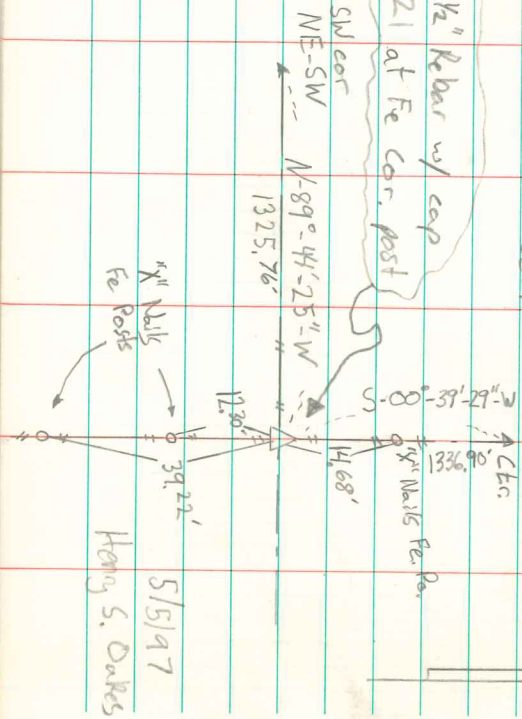 1/2" Rebar w/ cap
21 at Fe Cor. post
SW cor
NE-SW
N-89°-44'-25"-W
1325.76'
S-00°-39'-29"-W
1336.90'
Ctr.
"X" Nails Fe. Po.
14.68'
12.30'
39.22'
"X" Nails
Fe Posts
5/5/97
Henry S. Oakes